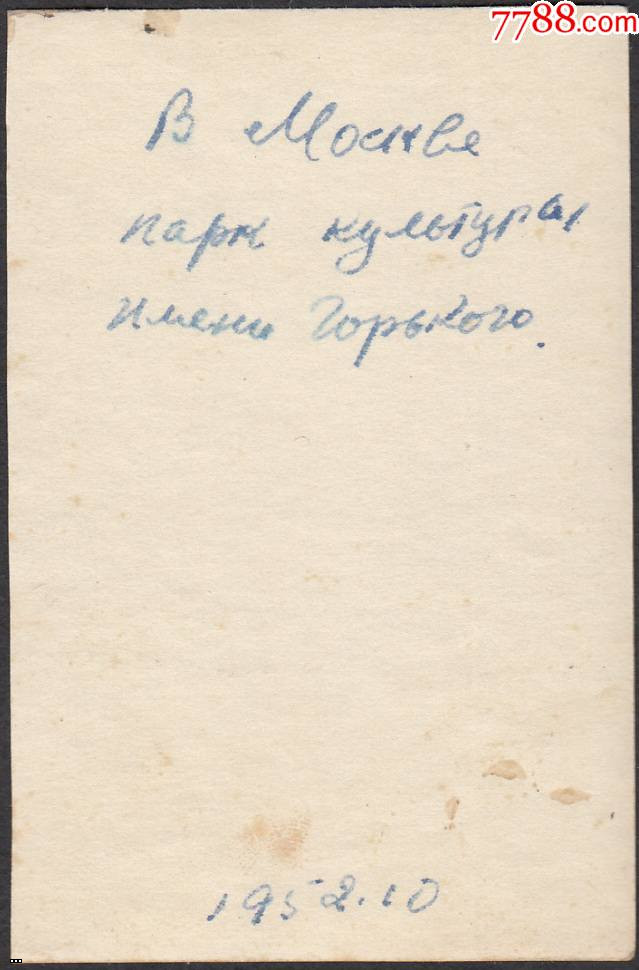 7788.com
В Москве
парк культуры
имени Горького.
1952.10